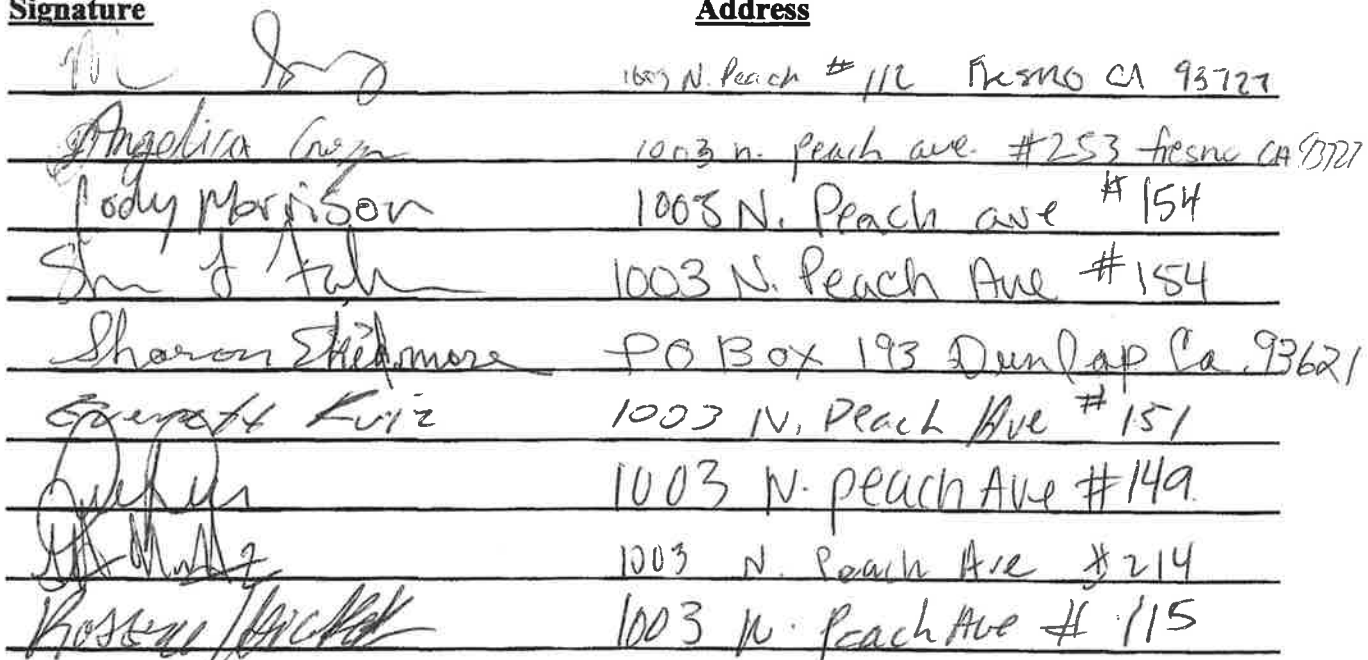 Signature Address
N. Peach # 112 Fresno CA 93727
Angelica 1003 n. peach ave. #253 fresno CA 93727
Cody Morrison 1003 N. Peach ave #154
1003 N. Peach Ave #154
Sharon Skidmore PO Box 193 Dunlap Ca. 93621
Everett Kuiz 1003 N. Peach Ave #151
1003 N. peach Ave #149
1003 N. Peach Ave #214
1003 N. Peach Ave # 115